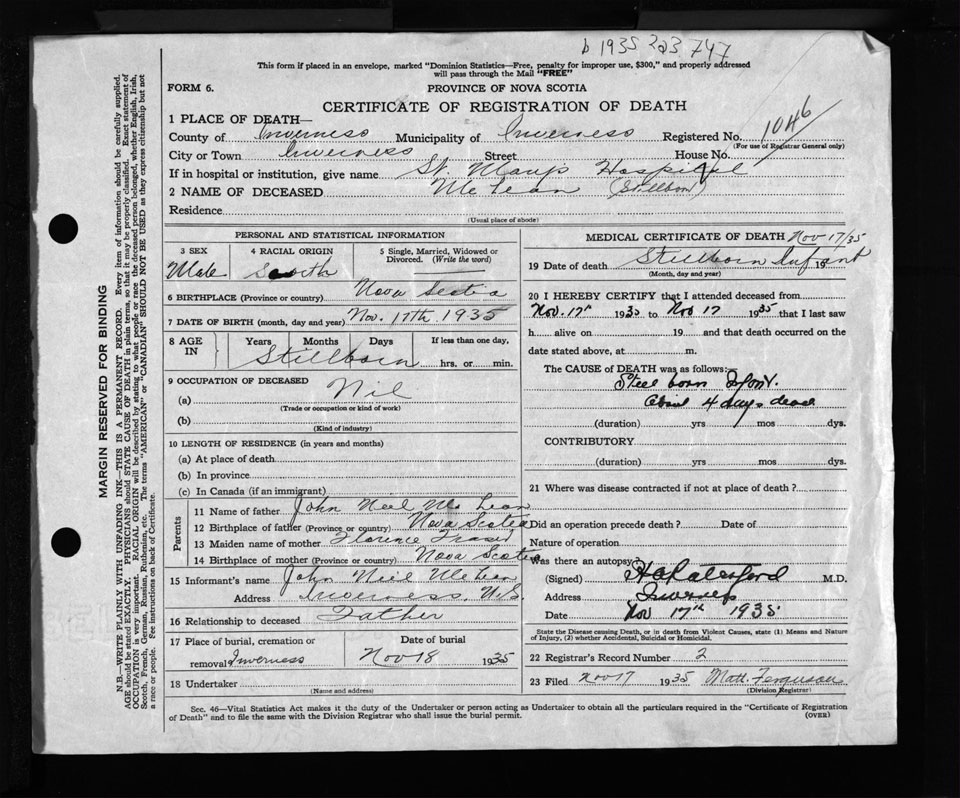 b 1935 223747
This form if placed in an envelope, marked "Dominion Statistics—Free, penalty for improper use, $300," and properly addressed
will pass through the Mail "FREE"
FORM 6.
PROVINCE OF NOVA SCOTIA
CERTIFICATE OF REGISTRATION OF DEATH
1 PLACE OF DEATH—
County of Inverness Municipality of Inverness Registered No. 1046
(For use of Registrar General only)
City or Town Inverness Street House No.
If in hospital or institution, give name St. Mary's Hospital
2 NAME OF DECEASED McLean (Stillborn)
Residence
(Usual place of abode)
PERSONAL AND STATISTICAL INFORMATION
3 SEX 4 RACIAL ORIGIN 5 Single, Married, Widowed or
Divorced. (Write the word)
Male Scotch
6 BIRTHPLACE (Province or country) Nova Scotia
7 DATE OF BIRTH (month, day and year) Nov. 17th 1935
8 AGE IN Years Months Days If less than one day,
Stillborn hrs. or min.
9 OCCUPATION OF DECEASED
(a) Nil
(Trade or occupation or kind of work)
(b)
(Kind of industry)
10 LENGTH OF RESIDENCE (in years and months)
(a) At place of death
(b) In province
(c) In Canada (if an immigrant)
Parents
11 Name of father John Neil McLean
12 Birthplace of father (Province or country) Nova Scotia
13 Maiden name of mother Florence Fraser
14 Birthplace of mother (Province or country) Nova Scotia
15 Informant's name John Neil McLean
Address Inverness, N.S.
16 Relationship to deceased Father
17 Place of burial, cremation or Date of burial
removal Inverness Nov 18 1935
18 Undertaker
(Name and address)
MEDICAL CERTIFICATE OF DEATH Nov 17/35
19 Date of death Stillborn Infant 19
(Month, day and year)
20 I HEREBY CERTIFY that I attended deceased from
Nov. 17th 1935 to Nov 17 1935 that I last saw
h alive on 19 and that death occurred on the
date stated above, at m.
The CAUSE of DEATH was as follows:
Still born Infant.
about 4 days dead
(duration) yrs mos dys.
CONTRIBUTORY
(duration) yrs mos dys.
21 Where was disease contracted if not at place of death?
Did an operation precede death? Date of
Nature of operation
Was there an autopsy
(Signed) M.D.
Address Inverness
Date Nov 17th 1935
State the Disease causing Death, or in death from Violent Causes, state (1) Means and Nature of
Injury, (2) whether Accidental, Suicidal or Homicidal.
22 Registrar's Record Number 2
23 Filed Nov 17 1935 Matt. Ferguson
(Division Registrar)
Sec. 46—Vital Statistics Act makes it the duty of the Undertaker or person acting as Undertaker to obtain all the particulars required in the "Certificate of Registration
of Death" and to file the same with the Division Registrar who shall issue the burial permit. (OVER)
MARGIN RESERVED FOR BINDING
N.B.—WRITE PLAINLY WITH UNFADING INK—THIS IS A PERMANENT RECORD. Every item of information should be carefully supplied.
AGE should be stated EXACTLY. PHYSICIANS should STATE CAUSE OF DEATH in plain terms, so that it may be properly classified. Exact statement of
OCCUPATION is very important. RACIAL ORIGIN will be described by stating to what people or race the deceased person belonged, whether English, Irish,
Scotch, French, German, Russian, Ruthenian, etc. The terms "AMERICAN" or "CANADIAN" SHOULD NOT BE USED as they express citizenship but not
a race or people. See instructions on back of Certificate.